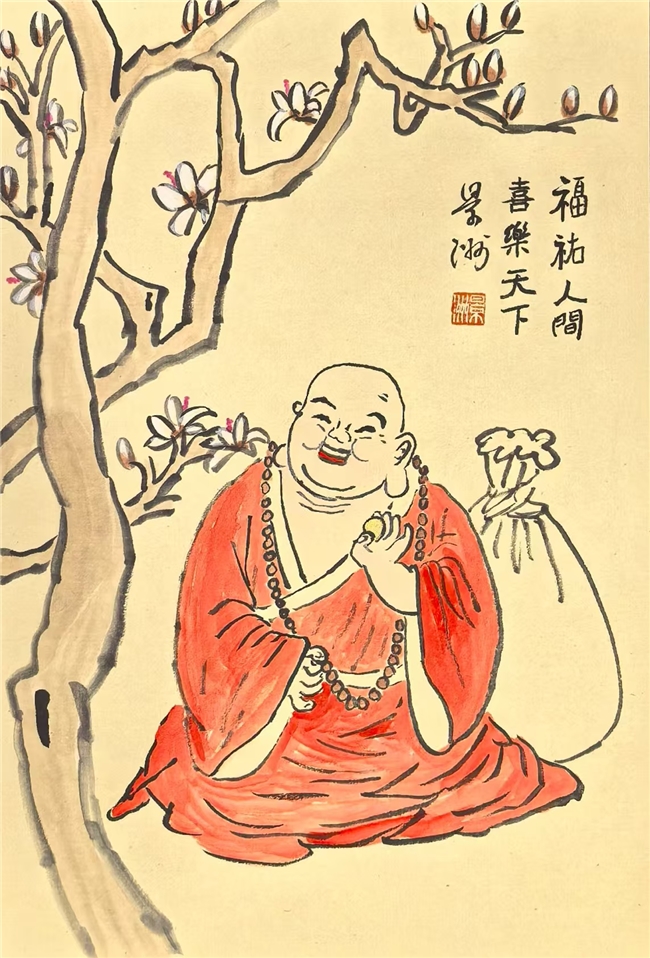 福祐人間
喜樂天下
景洲
景洲